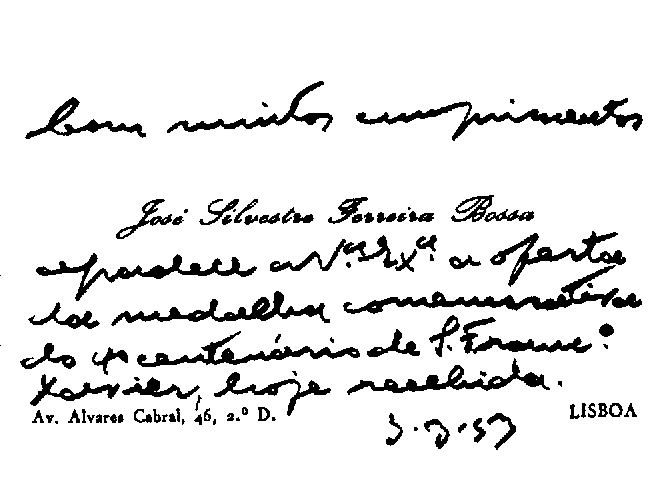 Com muitos cumprimentos
José Silvestre Ferreira Bossa
agradece a V.ª Ex.ª a oferta
da medalha comemorativa
do 4º centenário de S. Franc.º
Xavier, hoje recebida.
Av. Alvares Cabral, 46, 2.º D. LISBOA
3-3-53